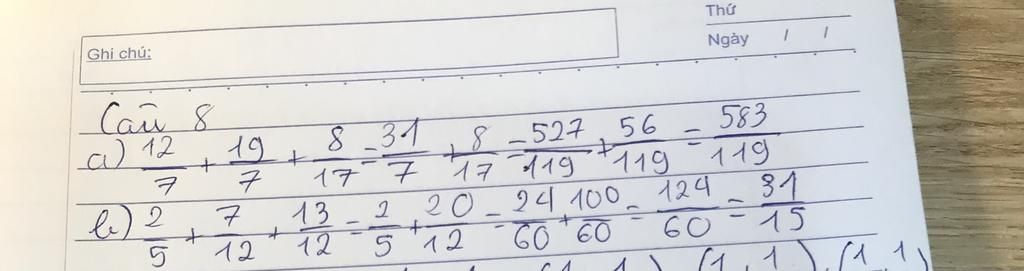 Thứ
Ghi chú:
Ngày / /
Câu 8
a) 12/7 + 19/7 + 8/17 = 31/7 + 8/17 = 527/119 + 56/119 = 583/119
b) 2/5 + 7/12 + 13/12 = 2/5 + 20/12 = 24/60 + 100/60 = 124/60 = 31/15